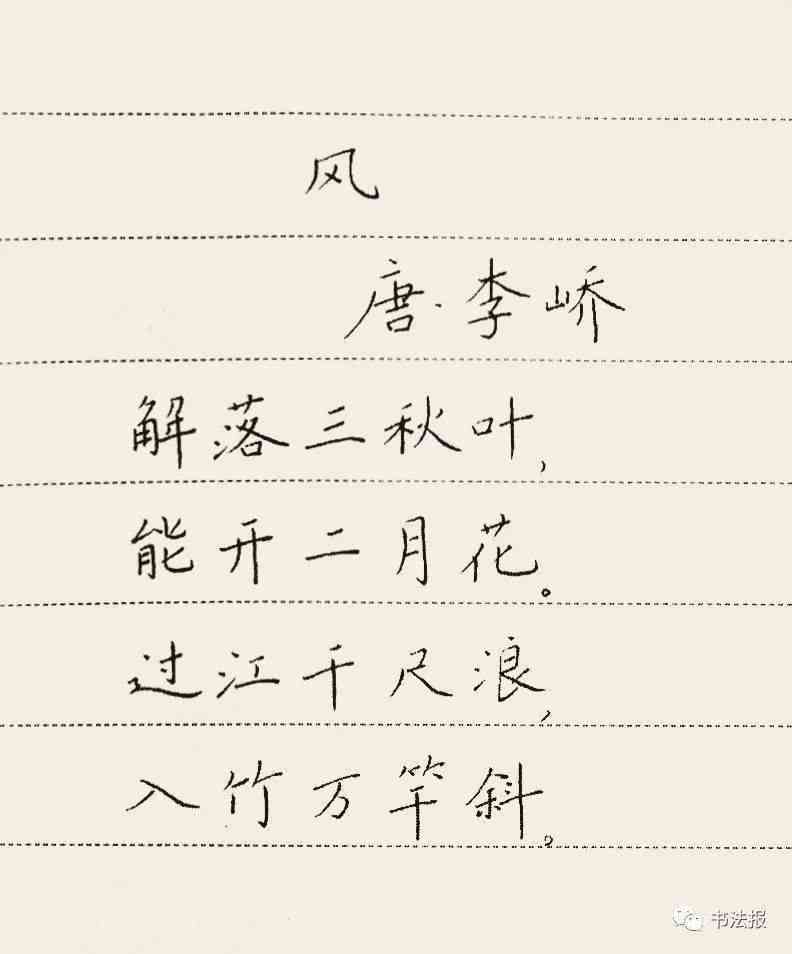 风
唐·李峤
解落三秋叶,
能开二月花。
过江千尺浪,
入竹万竿斜。
书法报